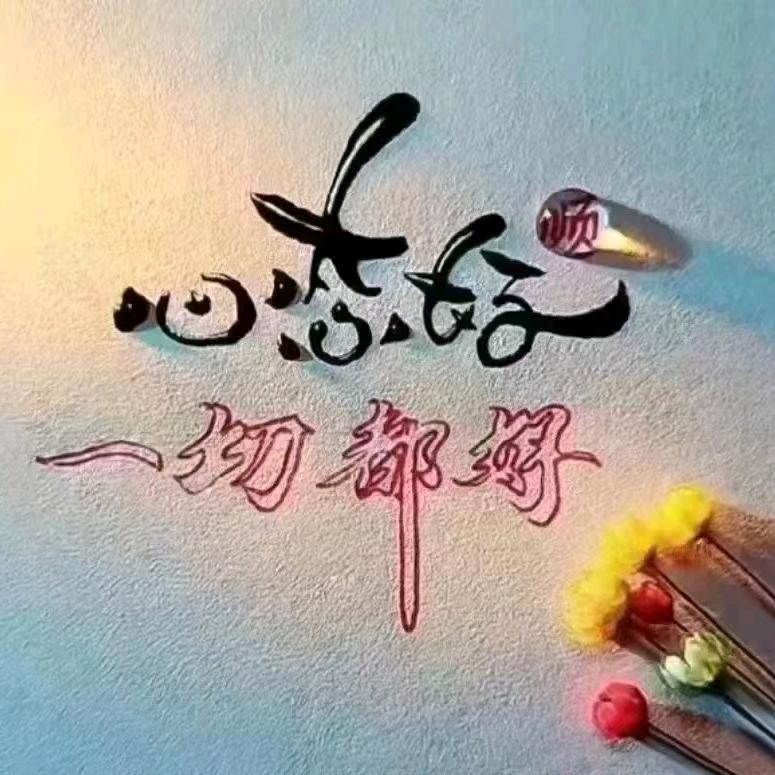 心态好
顺
一切都好